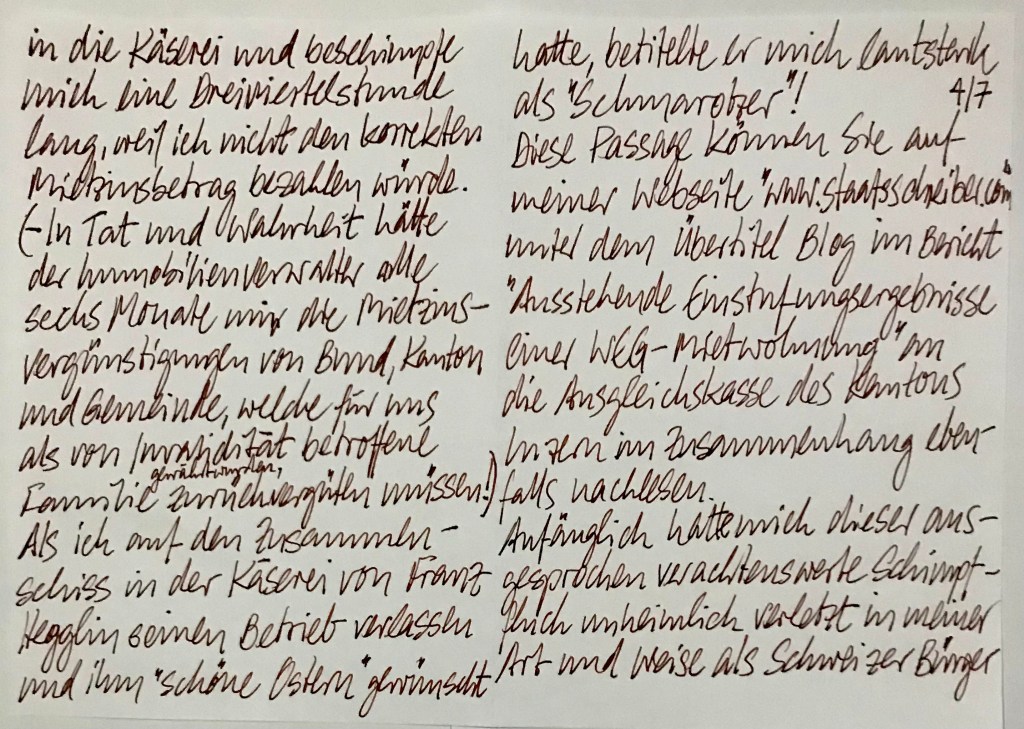 in die Käserei und beschimpfe
mich eine Dreiviertelstunde
lang, weil ich nicht den korrekten
Mietzinsbetrag bezahlen würde.
(-In Tat und Wahrheit hätte
der Immobilienverwalter alle
sechs Monate mir die Mietzins-
vergünstigungen von Bund, Kanton
und Gemeinde, welche für uns
als von Invalidität betroffene
gewährt wurden,
Familie zurückvergüten müssen!)
Als ich auf den Zusammen-
schiss in der Käserei von Franz
Hegglin seinen Betrieb verlassen
und ihm "schöne Ostern" gewünscht
hatte, betitelte er mich lautstark
als "Schmarotzer"!
4/7
Diese Passage können Sie auf
meiner Webseite "www.staatsschreiber.com"
unter dem Übertitel Blog im Bericht
"Ausstehende Einstufungsergebnisse
einer WEG-Mietwohnung" an
die Ausgleichskasse des Kantons
Luzern im Zusammenhang eben-
falls nachlesen.
Anfänglich hatte mich dieser aus-
gesprochen verachtenswerte Schimpf-
fluch unheimlich verletzt in meiner
Art und Weise als Schweizer Bürger